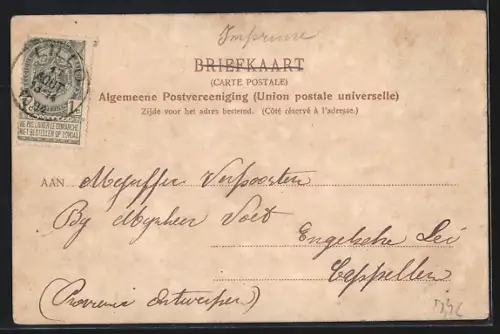 Imprimé
BRIEFKAART
(CARTE POSTALE)
Algemeene Postvereeniging (Union postale universelle)
Zijde voor het adres bestemd. (Côté réservé à l'adresse.)
1
NE PAS LIVRER LE DIMANCHE
NIET BESTELLEN OP ZONDAG
AOUT
AAN Mejuffer Verpoorten
By Mynheer Voet
Engelsche Lei
Cappellen
(Provincie Antwerpen)